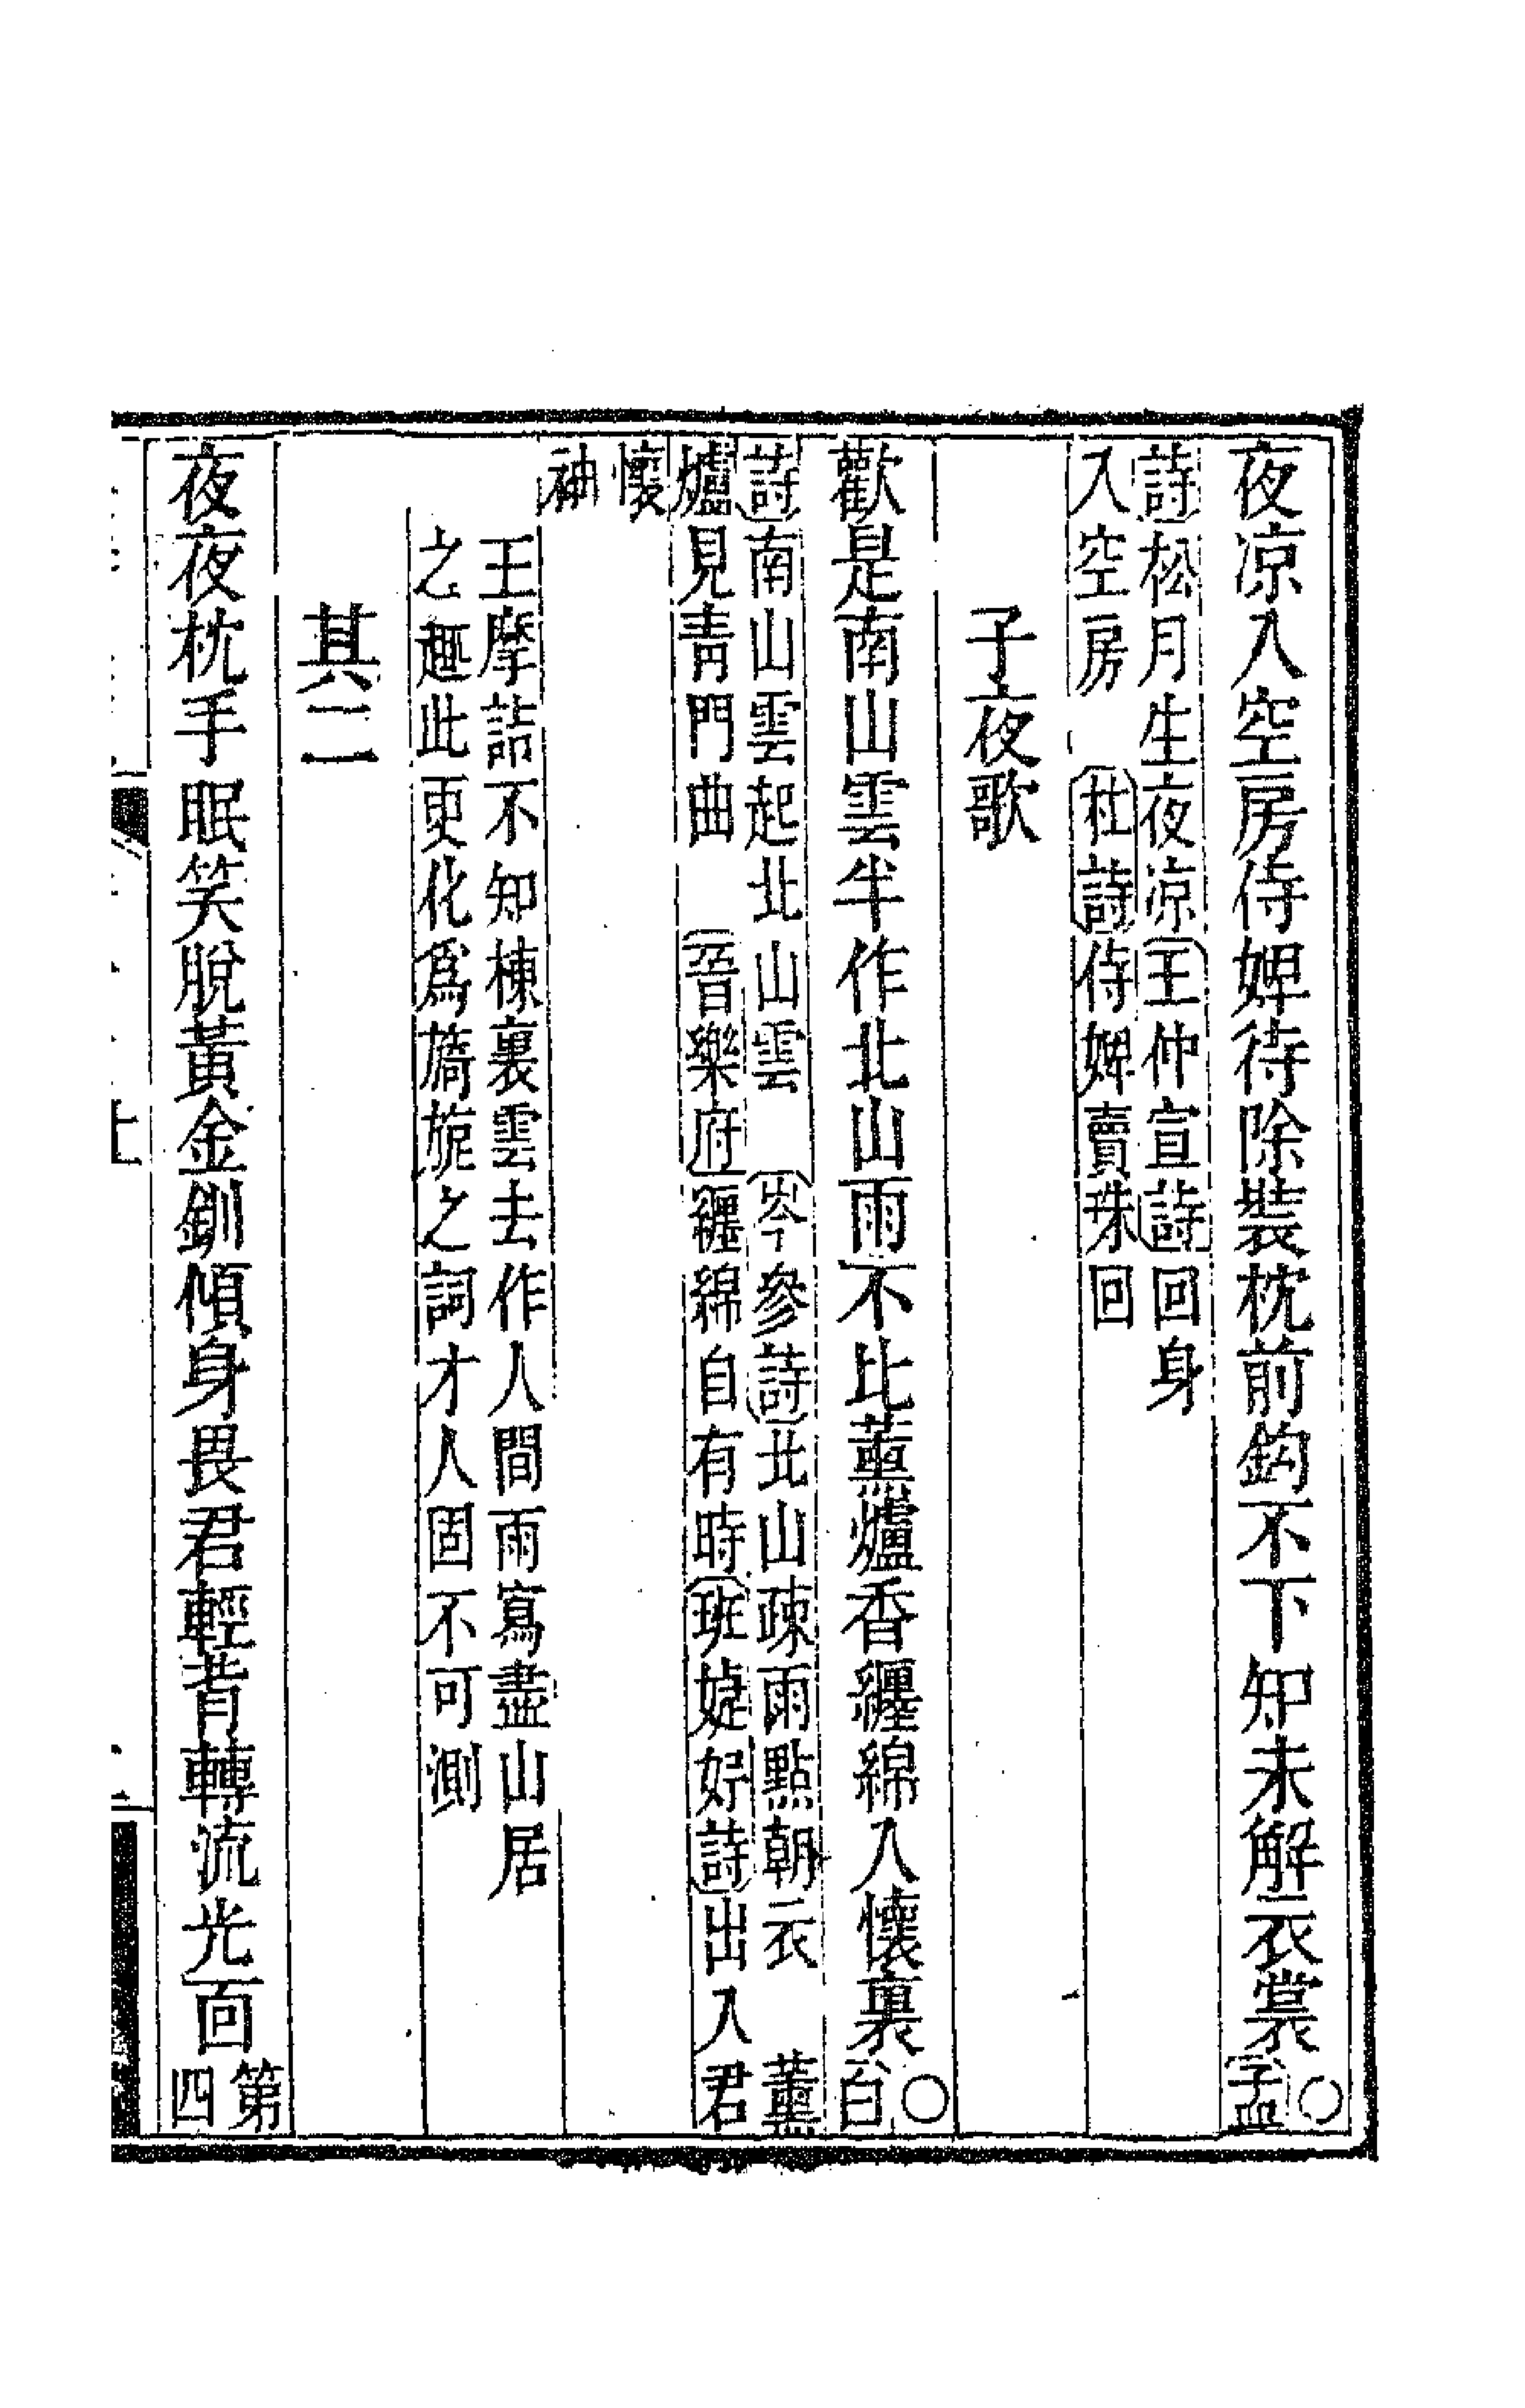 夜涼入空房侍婢待除裝枕前鈎不下知未解衣裳○孟
詩松月生夜涼王仲宣詩回身
入空房　杜詩侍婢賣珠回
子夜歌
歡是南山雲半作北山雨不比薰爐香纏綿入懷裏○白
詩南山雲起北山雲　岑參詩北山疎雨點朝衣　薰
爐見靑門曲　晉樂府纏綿自有時班婕妤詩出入君
懷
袖
王摩詰不知棟裏雲去作人間雨寫盡山居
之趣此更化爲旖旎之詞才人固不可測
其二
夜夜枕手眠笑脫黃金釧傾身畏君輕背轉流光面第
四